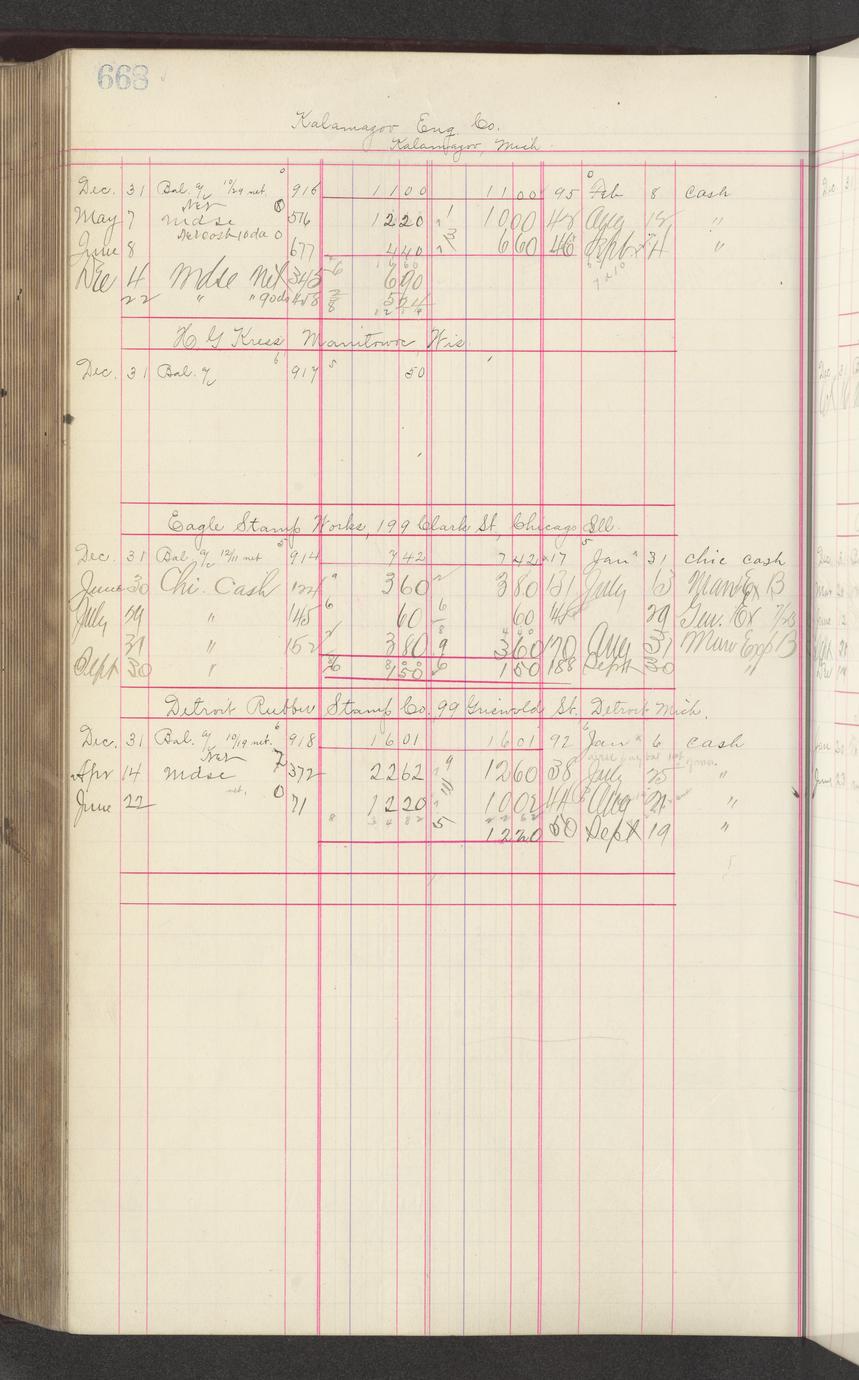 668
Kalamazoo Eng. Co.
Kalamazoo, Mich
Dec. 31 Bal. a/c 10/29 net. 0 916 11 00 11 00 95 0 Feb 8 cash
Net
May 7 mdse 0 576 12 20 10 00 48 Aug "
June 8 0 677 4 40 6 60 46 Sept 4 "
16 60
Dec 4 Mdse Net 345 6 6 90 7210
22 " " 90ds 458 5 24
12 14
H G Kress Manitowoc Wis.
Dec. 31 Bal. a/c 6 917 5 50
Eagle Stamp Works, 199 Clark St, Chicago Ill.
Dec. 31 Bal. a/c 12/11 net 5 914 7 42 7 42 17 5 Jan 31 chic cash
June 30 Chi. Cash 124 3 60 3 80 131 July 13 Man Ex B
July 29 " 145 6 60 6 60 29 Gen. Ex 7/28
31 " 152 3 80 9 3 60 170 Aug 31 Man Exp B
Sept 30 " 1 50 6 1 50 188 Sept 30 "
Detroit Rubber Stamp Co. 99 Griswold St. Detroit Mich.
Dec. 31 Bal. a/c 10/19 net. 6 918 16 01 16 01 92 6 Jan 6 cash
Net
Apr 14 mdse 7 372 22 62 9 12 60 38 July 25 "
June 22 net. 0 71 12 20 10 02 44 Aug 21 "
34 82 22 62
5 12 20 60 Sept 19 "